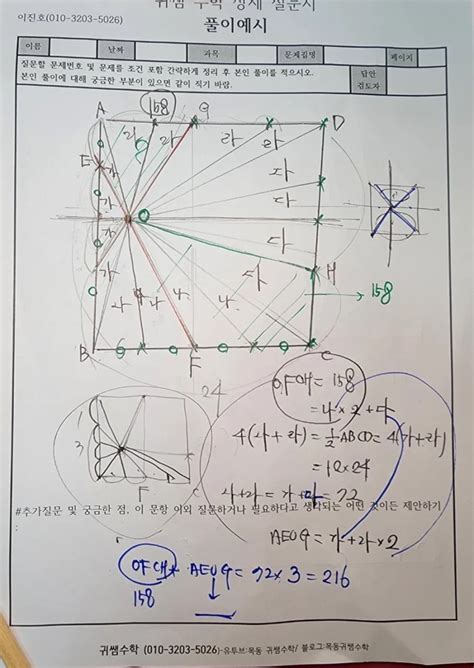 귀쌤 수학 상세 질문지
이진호(010-3203-5026)
풀이예시
이름 날짜 과목 문제집명 페이지
질문할 문제번호 및 문제를 조건 포함 간략하게 정리 후 본인 풀이를 적으시오.
본인 풀이에 대해 궁금한 부분이 있으면 같이 적기 바람.
답안
검토자
158
A G D
라 라 라 라
E
가
다
가 O 다
가
다
가 H
다
나 나 나 나
158
B F C
24
OFCH = 158
= 나×2+다
3
4(나+라) = ½ABCD = 4(가+다)
= 12×24
F C
나+라 = 가+다 = 72
#추가질문 및 궁금한 점. 이 문항 이외 질문하거나 필요하다고 생각되는 어떤 것이든 제안하기
:
AEOG = 가+라×2
OFCH + AEOG = 72×3 = 216
158
귀쌤수학 (010-3203-5026)-유투브:목동 귀쌤수학/ 블로그:목동귀쌤수학